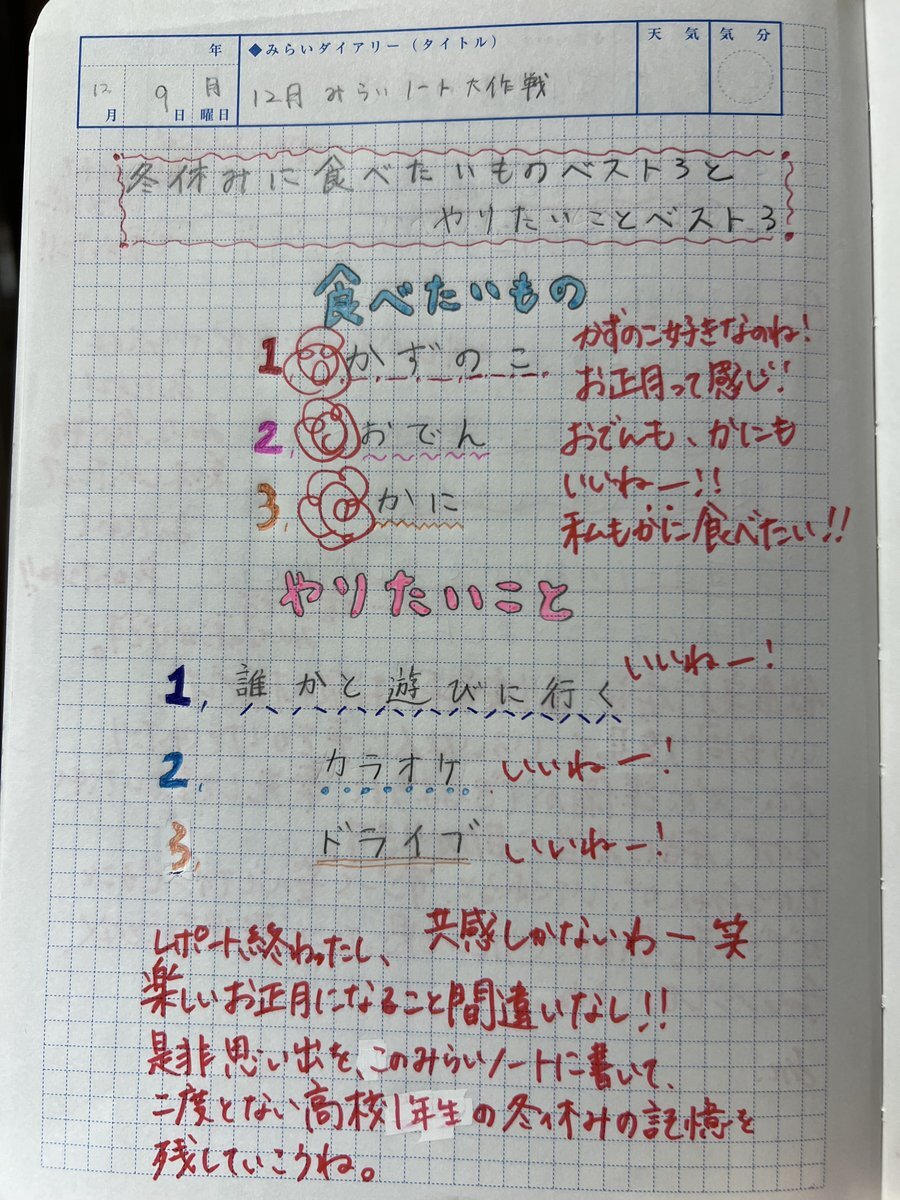 年 ◆みらいダイアリー(タイトル) 天気 気分
12月 9日 月曜日 12月 みらいノート大作戦
冬休みに食べたいものベスト3と
やりたいことベスト3
食べたいもの
1 かずのこ かずのこ好きなのね!
お正月って感じ!
2. おでん おでんも、かにも
いいねー!!
3. かに 私もかに食べたい!!
やりたいこと
1. 誰かと遊びに行く いいねー!
2. カラオケ いいねー!
3. ドライブ いいねー!
レポート終わったし、 共感しかないわー笑
楽しいお正月になること間違いなし!!
是非思い出を、このみらいノートに書いて、
二度とない高校1年生の冬休みの記憶を
残していこうね。